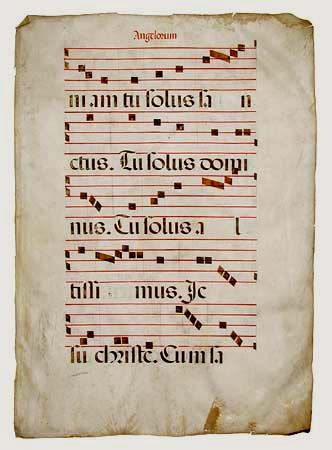 Angelorum
niam tu solus sa n
ctus. Tu solus domi
nus. Tu solus a l
tissi mus. Je
su christe. Cum sa